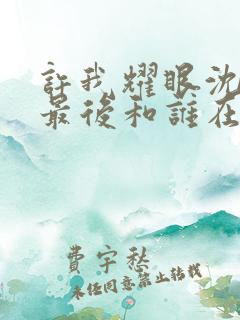 許我耀眼沈
最後和誰在
費宇愁
未任同意禁止转载